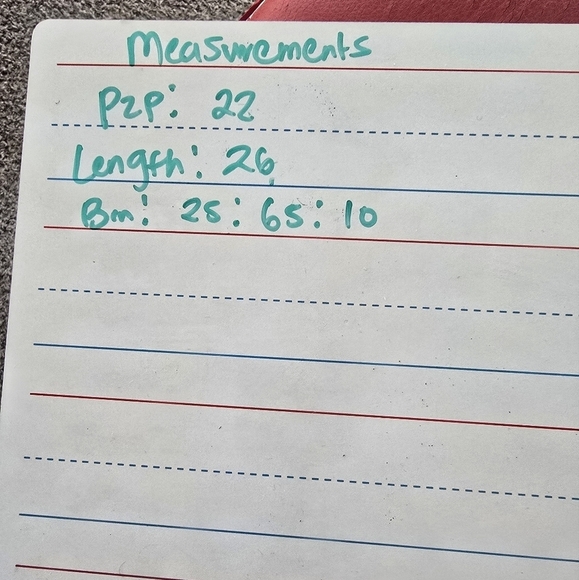 Measurements
P2P: 22
Length: 26
Bm: 25: 65: 10